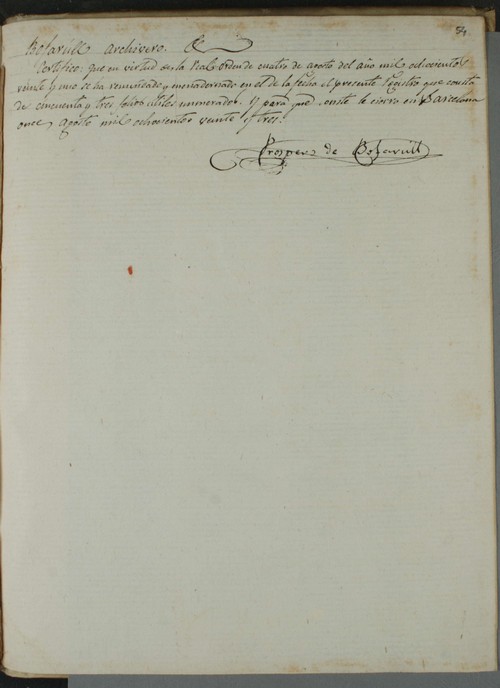 54
Bofarúll archivero.
Certifico: que en virtud de la Real orden de cuatro de agosto del año mil ochocientos
veinte y uno se ha remendado y encuadernado en el de la fecha el presente Registro que consta
de cincuenta y tres folios útiles numerados. Y para que conste le cierro en Barcelona
once, Agosto mil ochocientos veinte y tres.
Prospero de Bofarúll